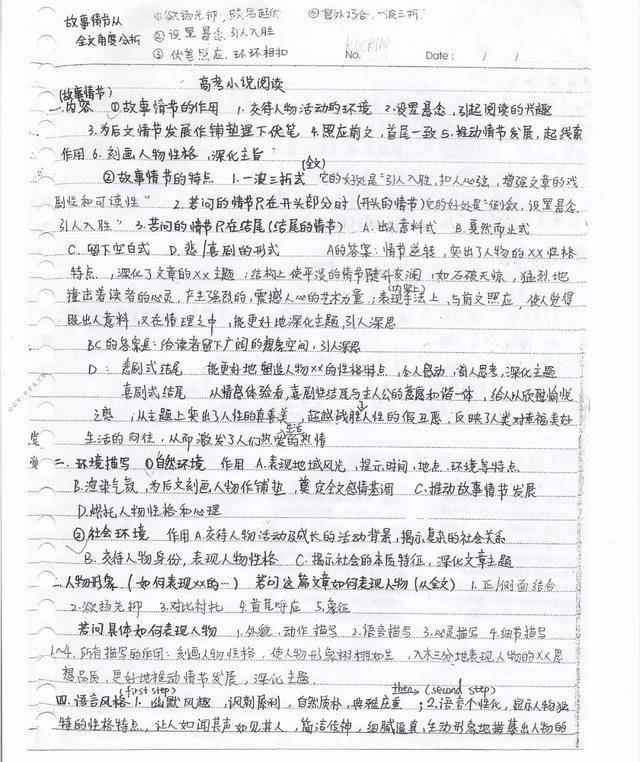 故事情节从 ①欲扬先抑,跌宕起伏 ④意外巧合,一波三折.
全文角度分析 ②设置悬念,引人入胜
③伏笔照应,环环相扣 No. Date: / /
高考小说阅读
(故事情节)
一.内容 ①故事情节的作用 1.交待人物活动的环境 2.设置悬念,引起阅读的兴趣
3.为后文情节发展作铺垫埋下伏笔 4.照应前文,首尾一致 5.推动情节发展,起线索
作用 6.刻画人物性格,深化主旨
(全文)
②故事情节的特点 1.一波三折式 它的好处是"引人入胜,扣人心弦,增强文章的戏
剧性和可读性" 2.若问的情节只在开头部分时(开头的情节)它的好处是"倒叙,设置悬念,
引人入胜" 3.若问的情节只在结尾(结尾的情节) A.出人意料式 B.戛然而止式
C.留下空白式 D.悲/喜剧的形式 A的答案:情节逆转,突出了人物的XX性格
特点,深化了文章的XX主题;结构上使平淡的情节陡升波澜,如石破天惊,猛烈地
撞击着读者的心灵,产生强烈的,震撼人心的艺术力量;表现手法上,与前文照应,使人觉得
(内容上)
既出人意料,又在情理之中,能更好地深化主题,引人深思
BC的答案是:给读者留下广阔的想象空间,引人深思
D:悲剧式结尾 能更好地塑造人物XX的性格特点,令人感动,引人思考,深化主题
喜剧式结尾 从情感体验看,喜剧性结尾与主人公的意愿和谐一体,给人以欣慰愉悦
之感;从主题上突出了人性的真善美,超越战胜人性的假丑恶,反映了人类对幸福美好
生活的向往,从而激发了人们热爱生活的热情
二.环境描写 ①自然环境 作用 A.表现地域风光,提示时间,地点,环境等特点
B.渲染气氛,为后文刻画人物作铺垫,奠定全文感情基调 C.推动故事情节发展
D.烘托人物性格和心理
②社会环境 作用 A.交待人物活动及成长的活动背景,揭示复杂的社会关系
B.交待人物身份,表现人物性格 C.揭示社会的本质特征,深化文章主题
三.人物形象(如何表现XX的…) 若问这篇文章如何表现人物(从全文) 1.正/侧面结合
2.欲扬先抑 3.对比衬托 4.首尾呼应 5.象征
若问具体如何表现人物 1.外貌,动作描写 2.语言描写 3.心灵描写 4.细节描写
1~4,所有描写的作用:刻画人物性格,使人物形象栩栩如生,入木三分地表现人物的XX思
想品质,更好地推动情节发展,深化主题.
(first step) then→(second step)
四.语言风格 1.幽默风趣,讽刺犀利,自然质朴,典雅庄重;2.语言个性化,显示人物独
特的性格特点,让人如闻其声如见其人,简洁传神,细腻逼真,生动形象地描摹出人物的